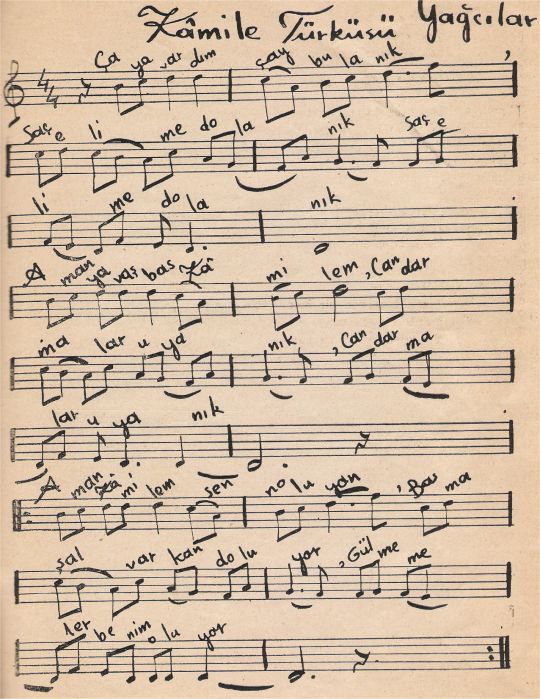 Kâmile Türküsü Yağcılar
4/4 Ça ya var dım çay bu la nık
Saç e li me do la nık Saç e
li me do la nık
A man ya vaş bas Kâ mi lem, Can dar
ma lar u ya nık, Can dar ma
lar u ya nık
A man Kâ mi lem sen no lu yon, Bas ma
şal var kan do lu yor, Gül me me
ler be nim o lu yor